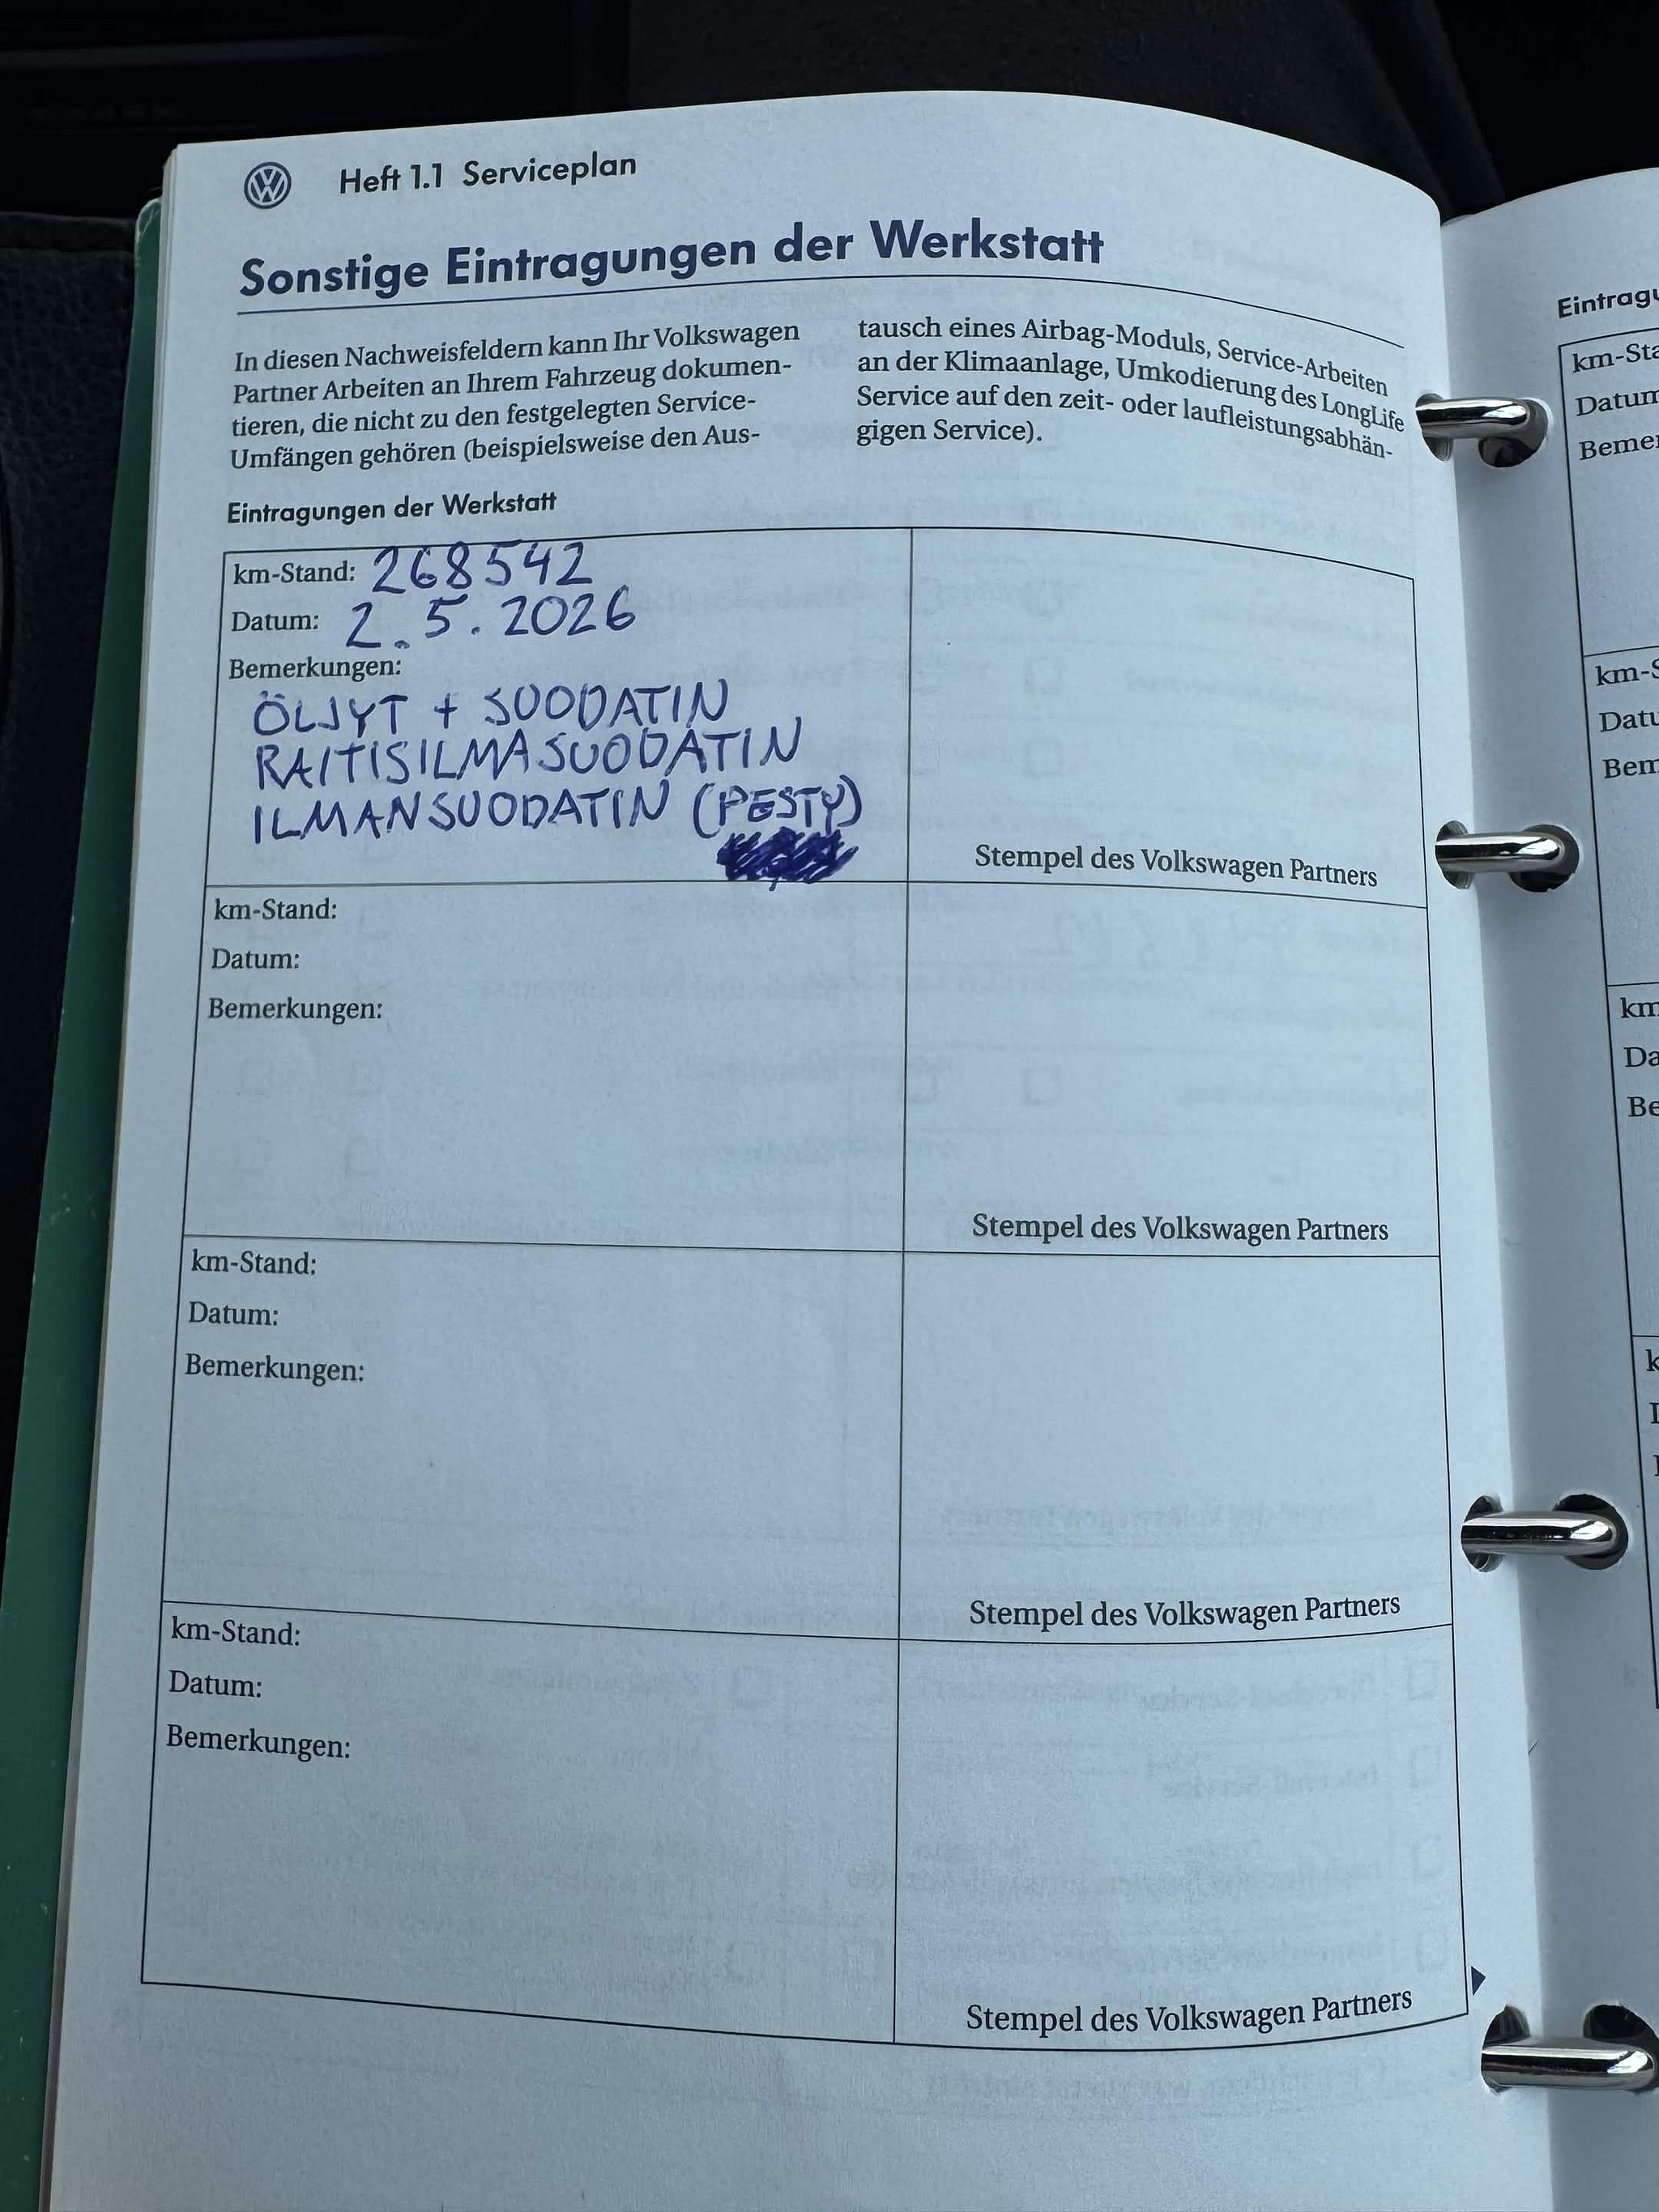 Heft 1.1 Serviceplan
Sonstige Eintragungen der Werkstatt
In diesen Nachweisfeldern kann Ihr Volkswagen
Partner Arbeiten an Ihrem Fahrzeug dokumen-
tieren, die nicht zu den festgelegten Service-
Umfängen gehören (beispielsweise den Aus-
tausch eines Airbag-Moduls, Service-Arbeiten
an der Klimaanlage, Umkodierung des LongLife
Service auf den zeit- oder laufleistungsabhän-
gigen Service).
Eintragungen der Werkstatt
km-Stand: 268542
Datum: 2.5.2026
Bemerkungen:
ÖLJYT + SUODATIN
RAITISILMASUODATIN
ILMANSUODATIN (PESTY)
Stempel des Volkswagen Partners
km-Stand:
Datum:
Bemerkungen:
Stempel des Volkswagen Partners
km-Stand:
Datum:
Bemerkungen:
Stempel des Volkswagen Partners
km-Stand:
Datum:
Bemerkungen:
Stempel des Volkswagen Partners